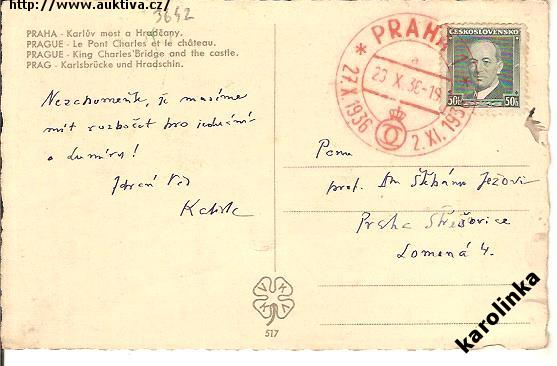 http://www.auktiva.cz/
3642
PRAHA - Karlův most a Hradčany.
PRAGUE - Le Pont Charles et le château.
PRAGUE - King Charles'Bridge and the castle.
PRAG - Karlsbrücke und Hradschin.
Nezapomeňte, že musíme
mít rozpočet pro jednání
o Lumíru!
Zdraví Vás
PRAHA
a
X. 36-19
27.X.1936
2.XI.193
ČESKOSLOVENSKO
50h 50h
Panu
prof. Dr Štěpánu Ježovi
Praha Střešovice
Lomená 4.
VKKV
517
karolinka